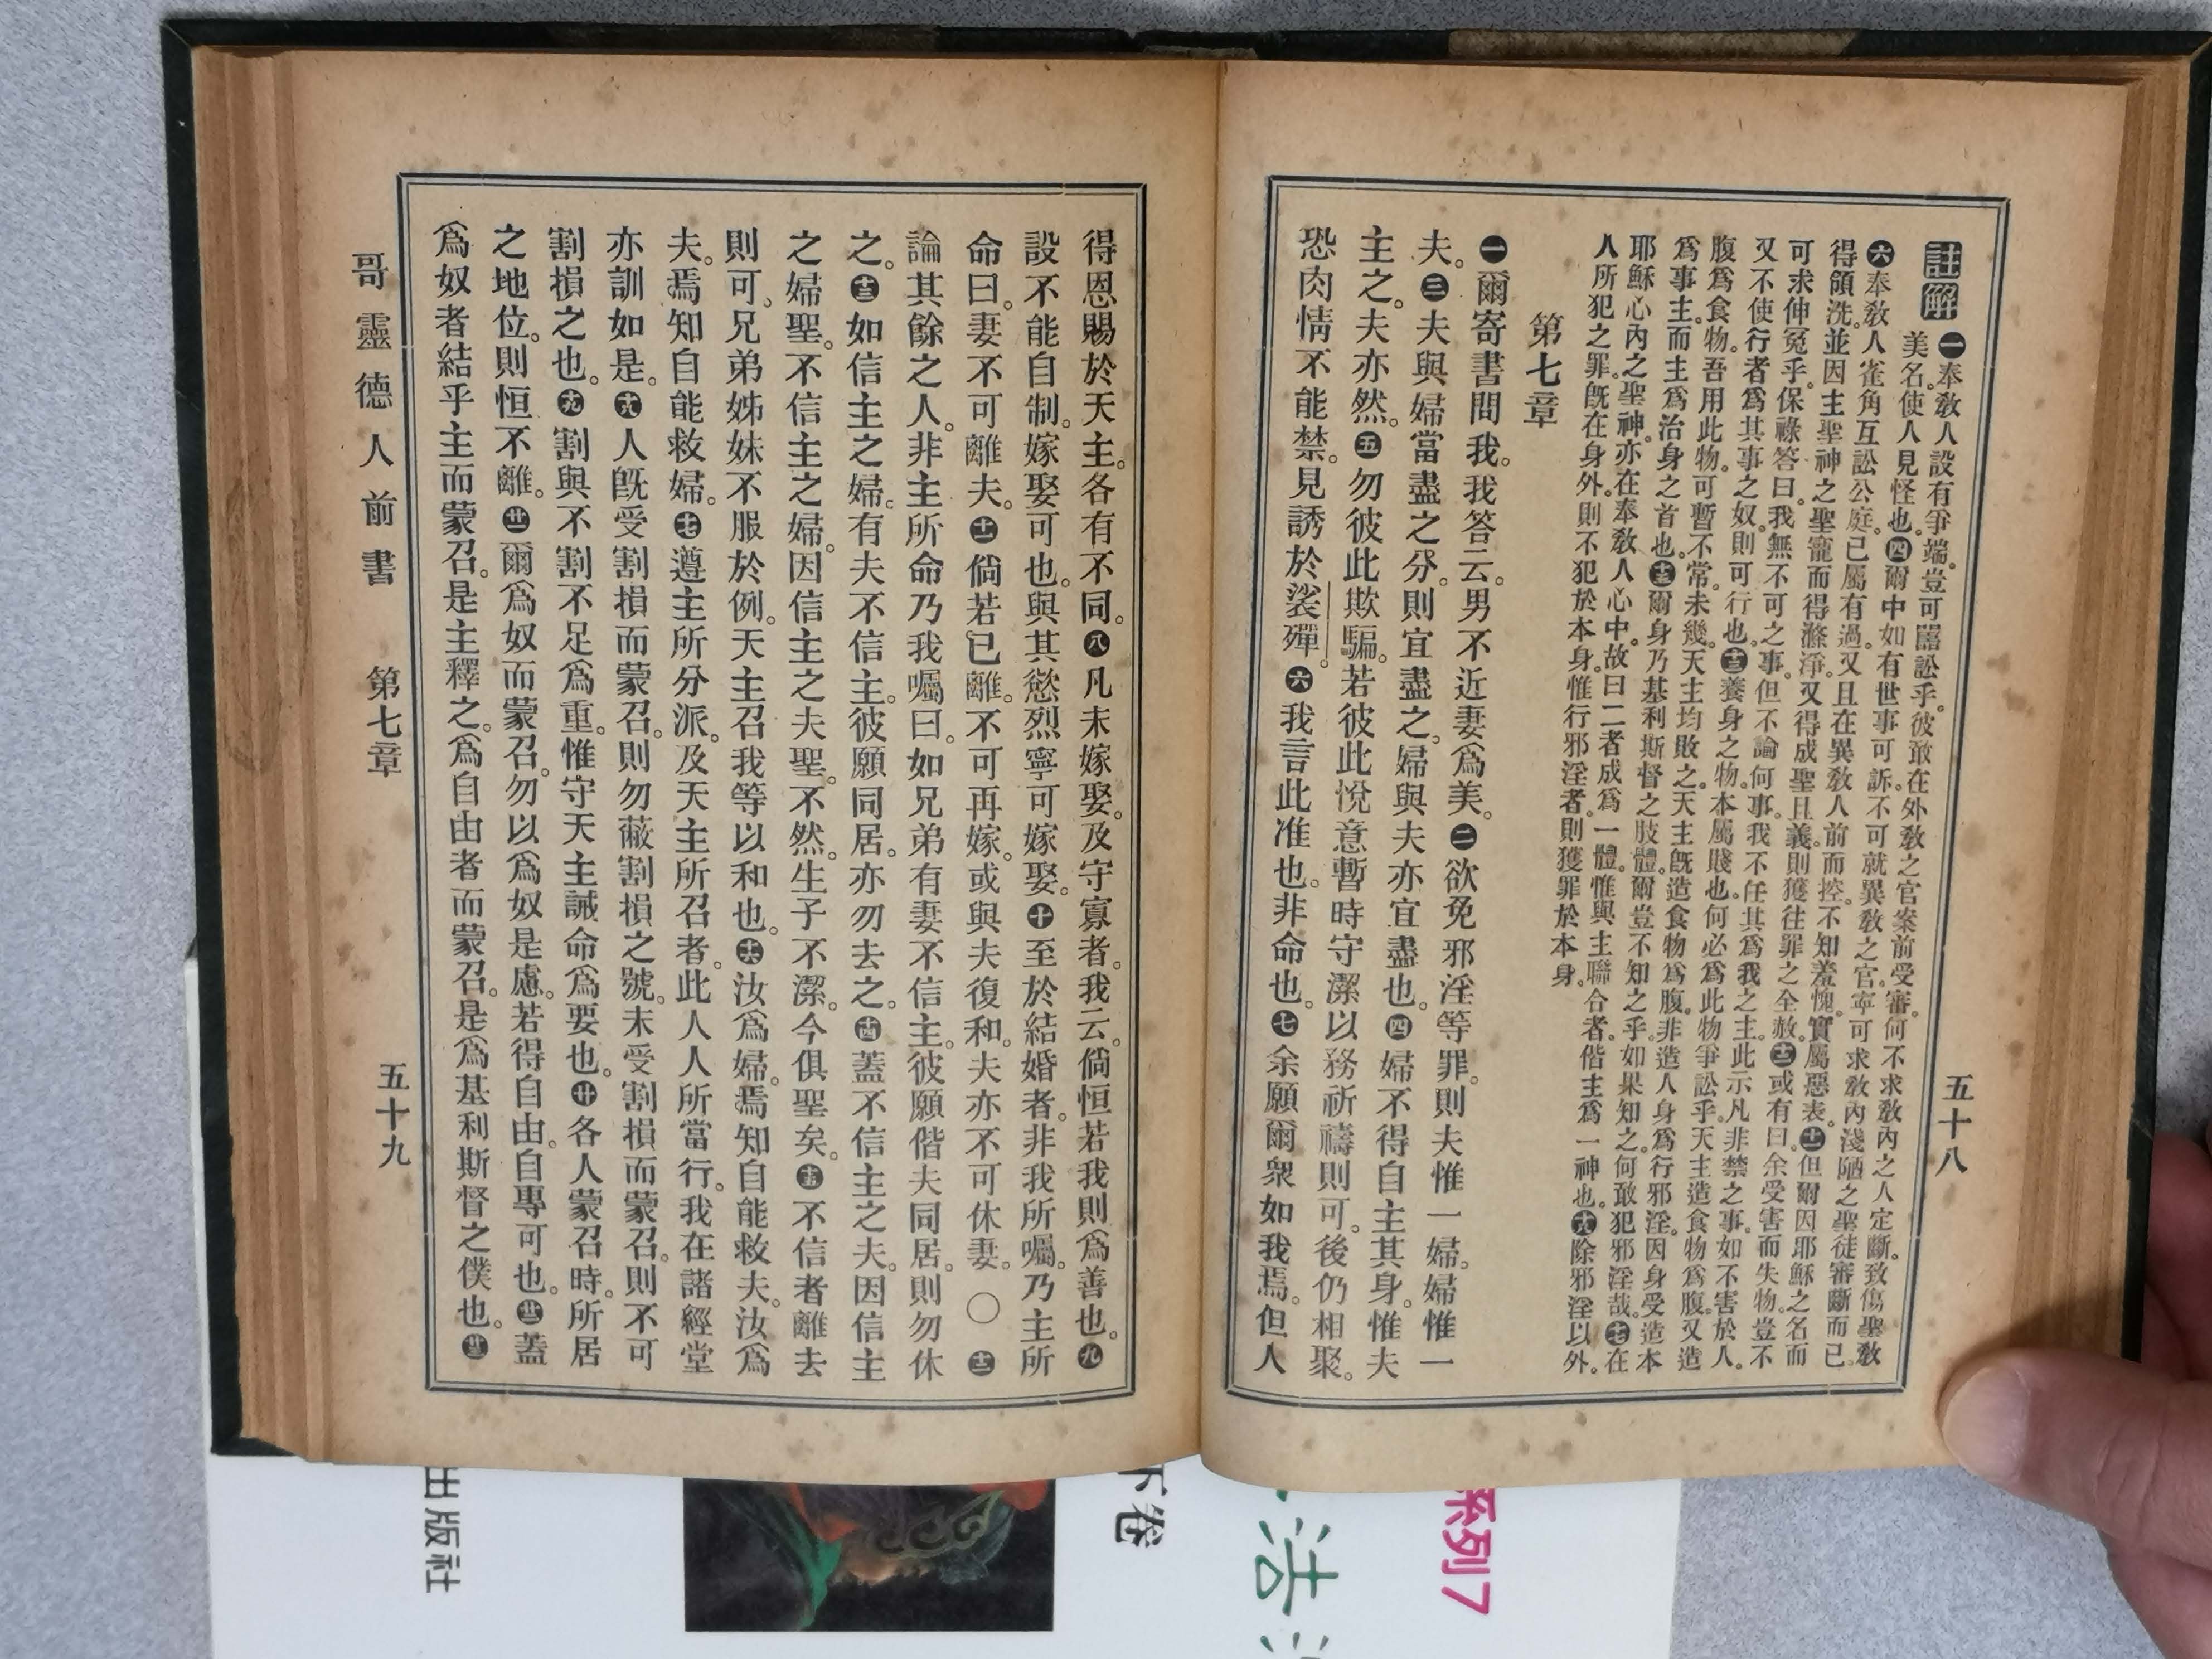 五十八
註解
㊀奉敎人設有爭端。豈可嚚訟乎。彼敢在外敎之官案前受審。何不求敎內之人定斷。致傷聖敎
美名。使人見怪也。㊃爾中如有世事可訴。不可就異敎之官。寧可求敎內淺陋之聖徒審斷而已
㊅奉敎人雀角互訟公庭。已屬有過。又且在異敎人前而控。不知羞愧。實屬惡表。十一但爾因耶穌之名而
得領洗。並因主聖神之聖寵而得滌淨。又得成聖且義。則獲往罪之全赦。十二或有曰。余受害而失物。豈不
可求伸冤乎。保祿答曰。我無不可之事。但不論何事。我不任其爲我之主。此示凡非禁之事。如不害於人。
又不使行者爲其事之奴。則可行也。十三養身之物。本屬賤也。何必爲此物爭訟乎。天主造食物爲腹。又造
腹爲食物。吾用此物。可暫不常。未幾。天主均敗之。天主旣造食物爲腹。非造人身爲行邪淫。因身受造本
爲事主。而主爲治身之首也。十五爾身乃基利斯督之肢體。爾豈不知之乎。如果知之。何敢犯邪淫哉。十七在
耶穌心內之聖神。亦在奉敎人心中。故曰二者成爲一體。惟與主聯合者。偕主爲一神也。十八除邪淫以外。
人所犯之罪。旣在身外。則不犯於本身。惟行邪淫者。則獲罪於本身。
第七章
㊀爾寄書問我。我答云。男不近妻爲美。㊁欲免邪淫等罪。則夫惟一婦。婦惟一
夫。㊂夫與婦當盡之分。則宜盡之。婦與夫亦宜盡也。㊃婦不得自主其身。惟夫
主之。夫亦然。㊄勿彼此欺騙。若彼此悅意暫時守潔以務祈禱則可。後仍相聚。
恐肉情不能禁。見誘於裟殫。㊅我言此准也。非命也。㊆余願爾衆如我焉。但人
得恩賜於天主。各有不同。㊇凡未嫁娶。及守寡者。我云。倘恒若我則爲善也。㊈
設不能自制。嫁娶可也。與其慾烈寧可嫁娶。㊉至於結婚者。非我所囑。乃主所
命曰。妻不可離夫。十一倘若已離。不可再嫁。或與夫復和。夫亦不可休妻。〇十二
論其餘之人。非主所命乃我囑曰。如兄弟有妻不信主。彼願偕夫同居。則勿休
之。十三如信主之婦。有夫不信主。彼願同居。亦勿去之。十四蓋不信主之夫。因信主
之婦聖。不信主之婦。因信主之夫聖。不然。生子不潔。今俱聖矣。十五不信者離去
則可。兄弟姊妹不服於例。天主召我等以和也。十六汝爲婦。焉知自能救夫。汝爲
夫。焉知自能救婦。十七遵主所分派。及天主所召者。此人人所當行。我在諸經堂
亦訓如是。十八人旣受割損而蒙召。則勿蔽割損之號。未受割損而蒙召。則不可
割損之也。十九割與不割不足爲重。惟守天主誡命爲要也。廿各人蒙召時。所居
之地位。則恒不離。廿一爾爲奴而蒙召。勿以爲奴是慮。若得自由。自專可也。廿二蓋
爲奴者結乎主而蒙召。是主釋之。爲自由者而蒙召。是爲基利斯督之僕也。廿三
哥靈德人前書 第七章 五十九
系列7
下卷
出版社